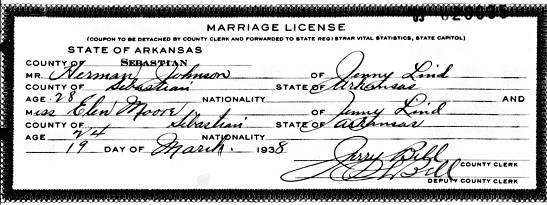 MARRIAGE LICENSE
(COUPON TO BE DETACHED BY COUNTY CLERK AND FORWARDED TO STATE REGISTRAR VITAL STATISTICS, STATE CAPITOL)
STATE OF ARKANSAS
COUNTY OF SEBASTIAN
MR. Herman Johnson OF Jenny Lind
COUNTY OF Sebastian STATE OF Arkansas
AGE 28 NATIONALITY AND
Miss Elen Moore OF Jenny Lind
COUNTY OF Sebastian STATE OF Arkansas
AGE 24 NATIONALITY
19 DAY OF March 1938
Jerry Bell COUNTY CLERK
Bell DEPUTY COUNTY CLERK